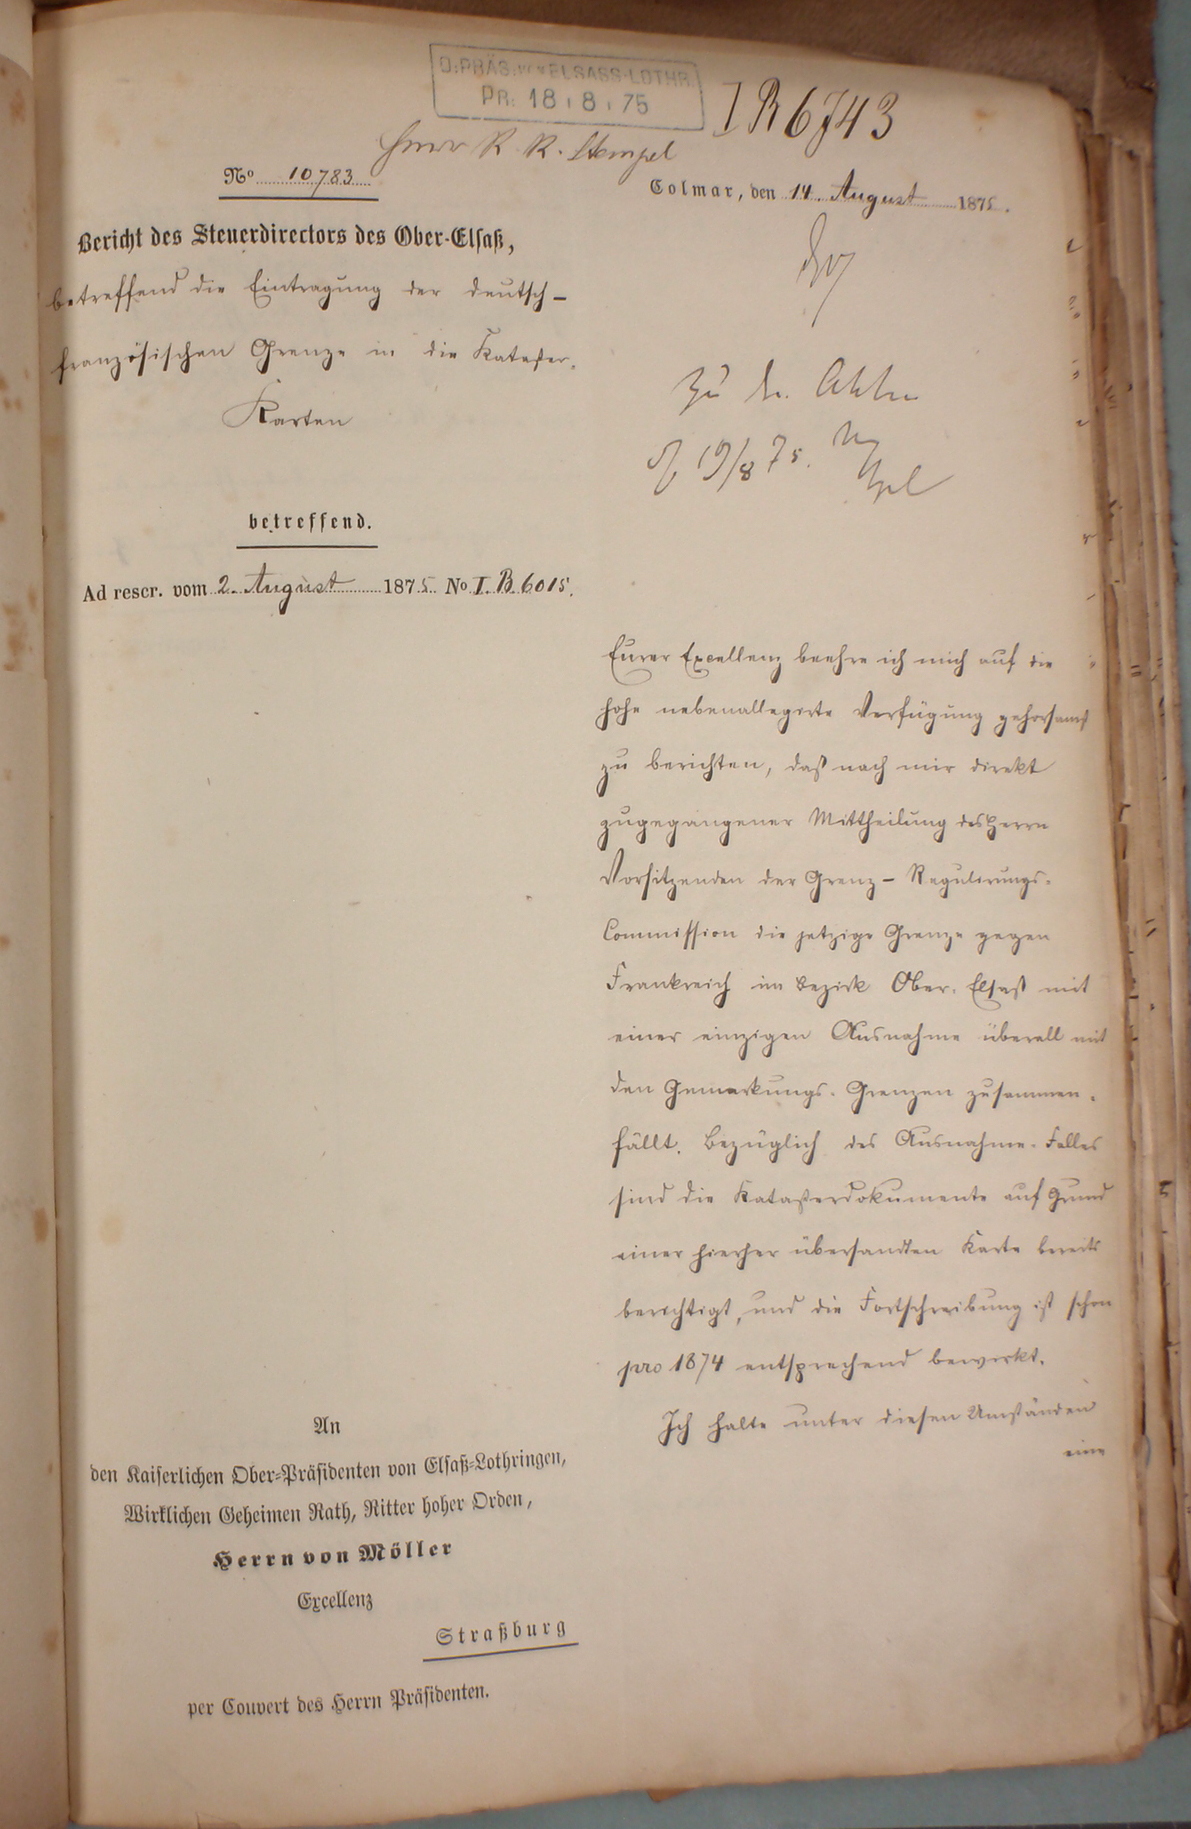 O:PRÄS: V. ELSASS-LOTHR.
PR: 18 8 75
I B 6743
Herrn R. R. Stempel
No 10783
Colmar, den 14. August 1875.
Bericht des Steuerdirectors des Ober-Elsaß,
betreffend die Eintragung der deutsch-
französischen Grenze in die Kataster-
Karten
zu den Akten
19/8 75.
betreffend.
Ad rescr. vom 2. August 1875. No I. B. 6015.
Eurer Excellenz beehre ich mich auf die
hohe nebenallegirte Verfügung gehorsamst
zu berichten, daß nach mir direkt
zugegangener Mittheilung des Herrn
Vorsitzenden der Grenz-Regulirungs-
Commission die jetzige Grenze gegen
Frankreich im Bezirk Ober-Elsaß mit
einer einzigen Ausnahme überall mit
den Gemarkungs-Grenzen zusammen-
fällt. Bezüglich des Ausnahme-Falles
sind die Katasterdokumente auf Grund
einer hierher übersandten Karte bereits
berichtigt, und die Fortschreibung ist schon
pro 1874 entsprechend bewirkt.
Ich halte unter diesen Umständen
eine
An
den Kaiserlichen Ober-Präsidenten von Elsaß-Lothringen,
Wirklichen Geheimen Rath, Ritter hoher Orden,
Herrn von Möller
Excellenz
Straßburg
per Couvert des Herrn Präsidenten.